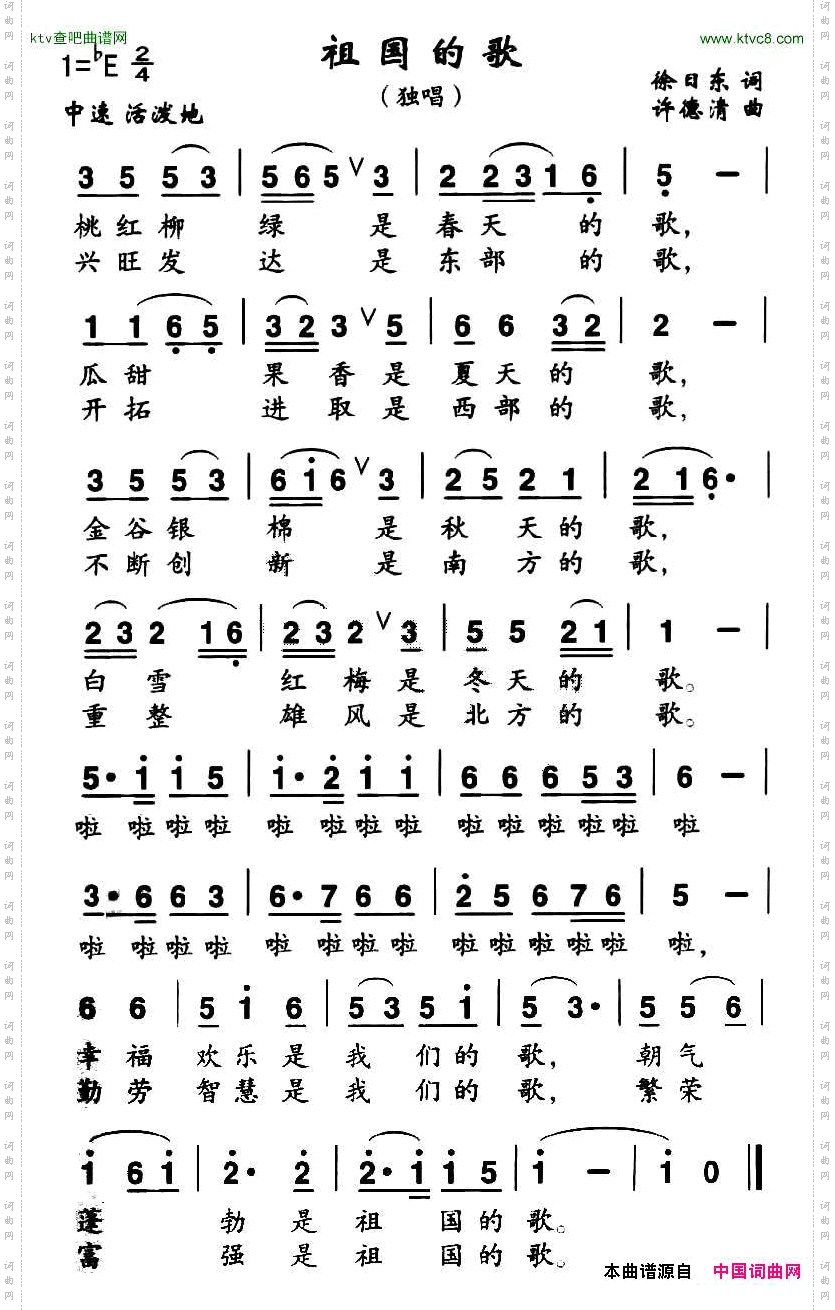 ktv查吧曲谱网
www.ktvc8.com
1=♭E 2/4
祖国的歌
(独唱)
徐日东 词
许德清 曲
中速 活泼地
3 5 5 3 | 5 6 5 ∨ 3 | 2 2 3 1 6 | 5 — |
桃红柳 绿 是春天 的 歌,
兴旺发 达 是东部 的 歌,
1 1 6 5 | 3 2 3 ∨ 5 | 6 6 3 2 | 2 — |
瓜甜 果香是夏天的 歌,
开拓 进取是西部的 歌,
3 5 5 3 | 6 i 6 ∨ 3 | 2 5 2 1 | 2 1 6· |
金谷银 棉 是秋 天的 歌,
不断创 新 是南 方的 歌,
2 3 2 1 6 | 2 3 2 ∨ 3 | 5 5 2 1 | 1 — |
白雪 红梅是冬天的 歌。
重整 雄风是北方的 歌。
5· i i 5 | i· 2 i i | 6 6 6 5 3 | 6 — |
啦 啦啦啦 啦 啦啦啦 啦啦啦啦啦 啦
3· 6 6 3 | 6· 7 6 6 | 2 5 6 7 6 | 5 — |
啦 啦啦啦 啦 啦啦啦 啦啦啦啦啦 啦,
6 6 | 5 i 6 | 5 3 5 i | 5 3· | 5 5 6 |
幸福 欢乐是 我 们的 歌, 朝气
勤劳 智慧是 我 们的 歌, 繁荣
i 6 i | 2· 2 | 2· i i 5 | i — | i 0 ‖
蓬 勃 是 祖 国的 歌。
富 强 是 祖 国的 歌。
本曲谱源自 中国词曲网